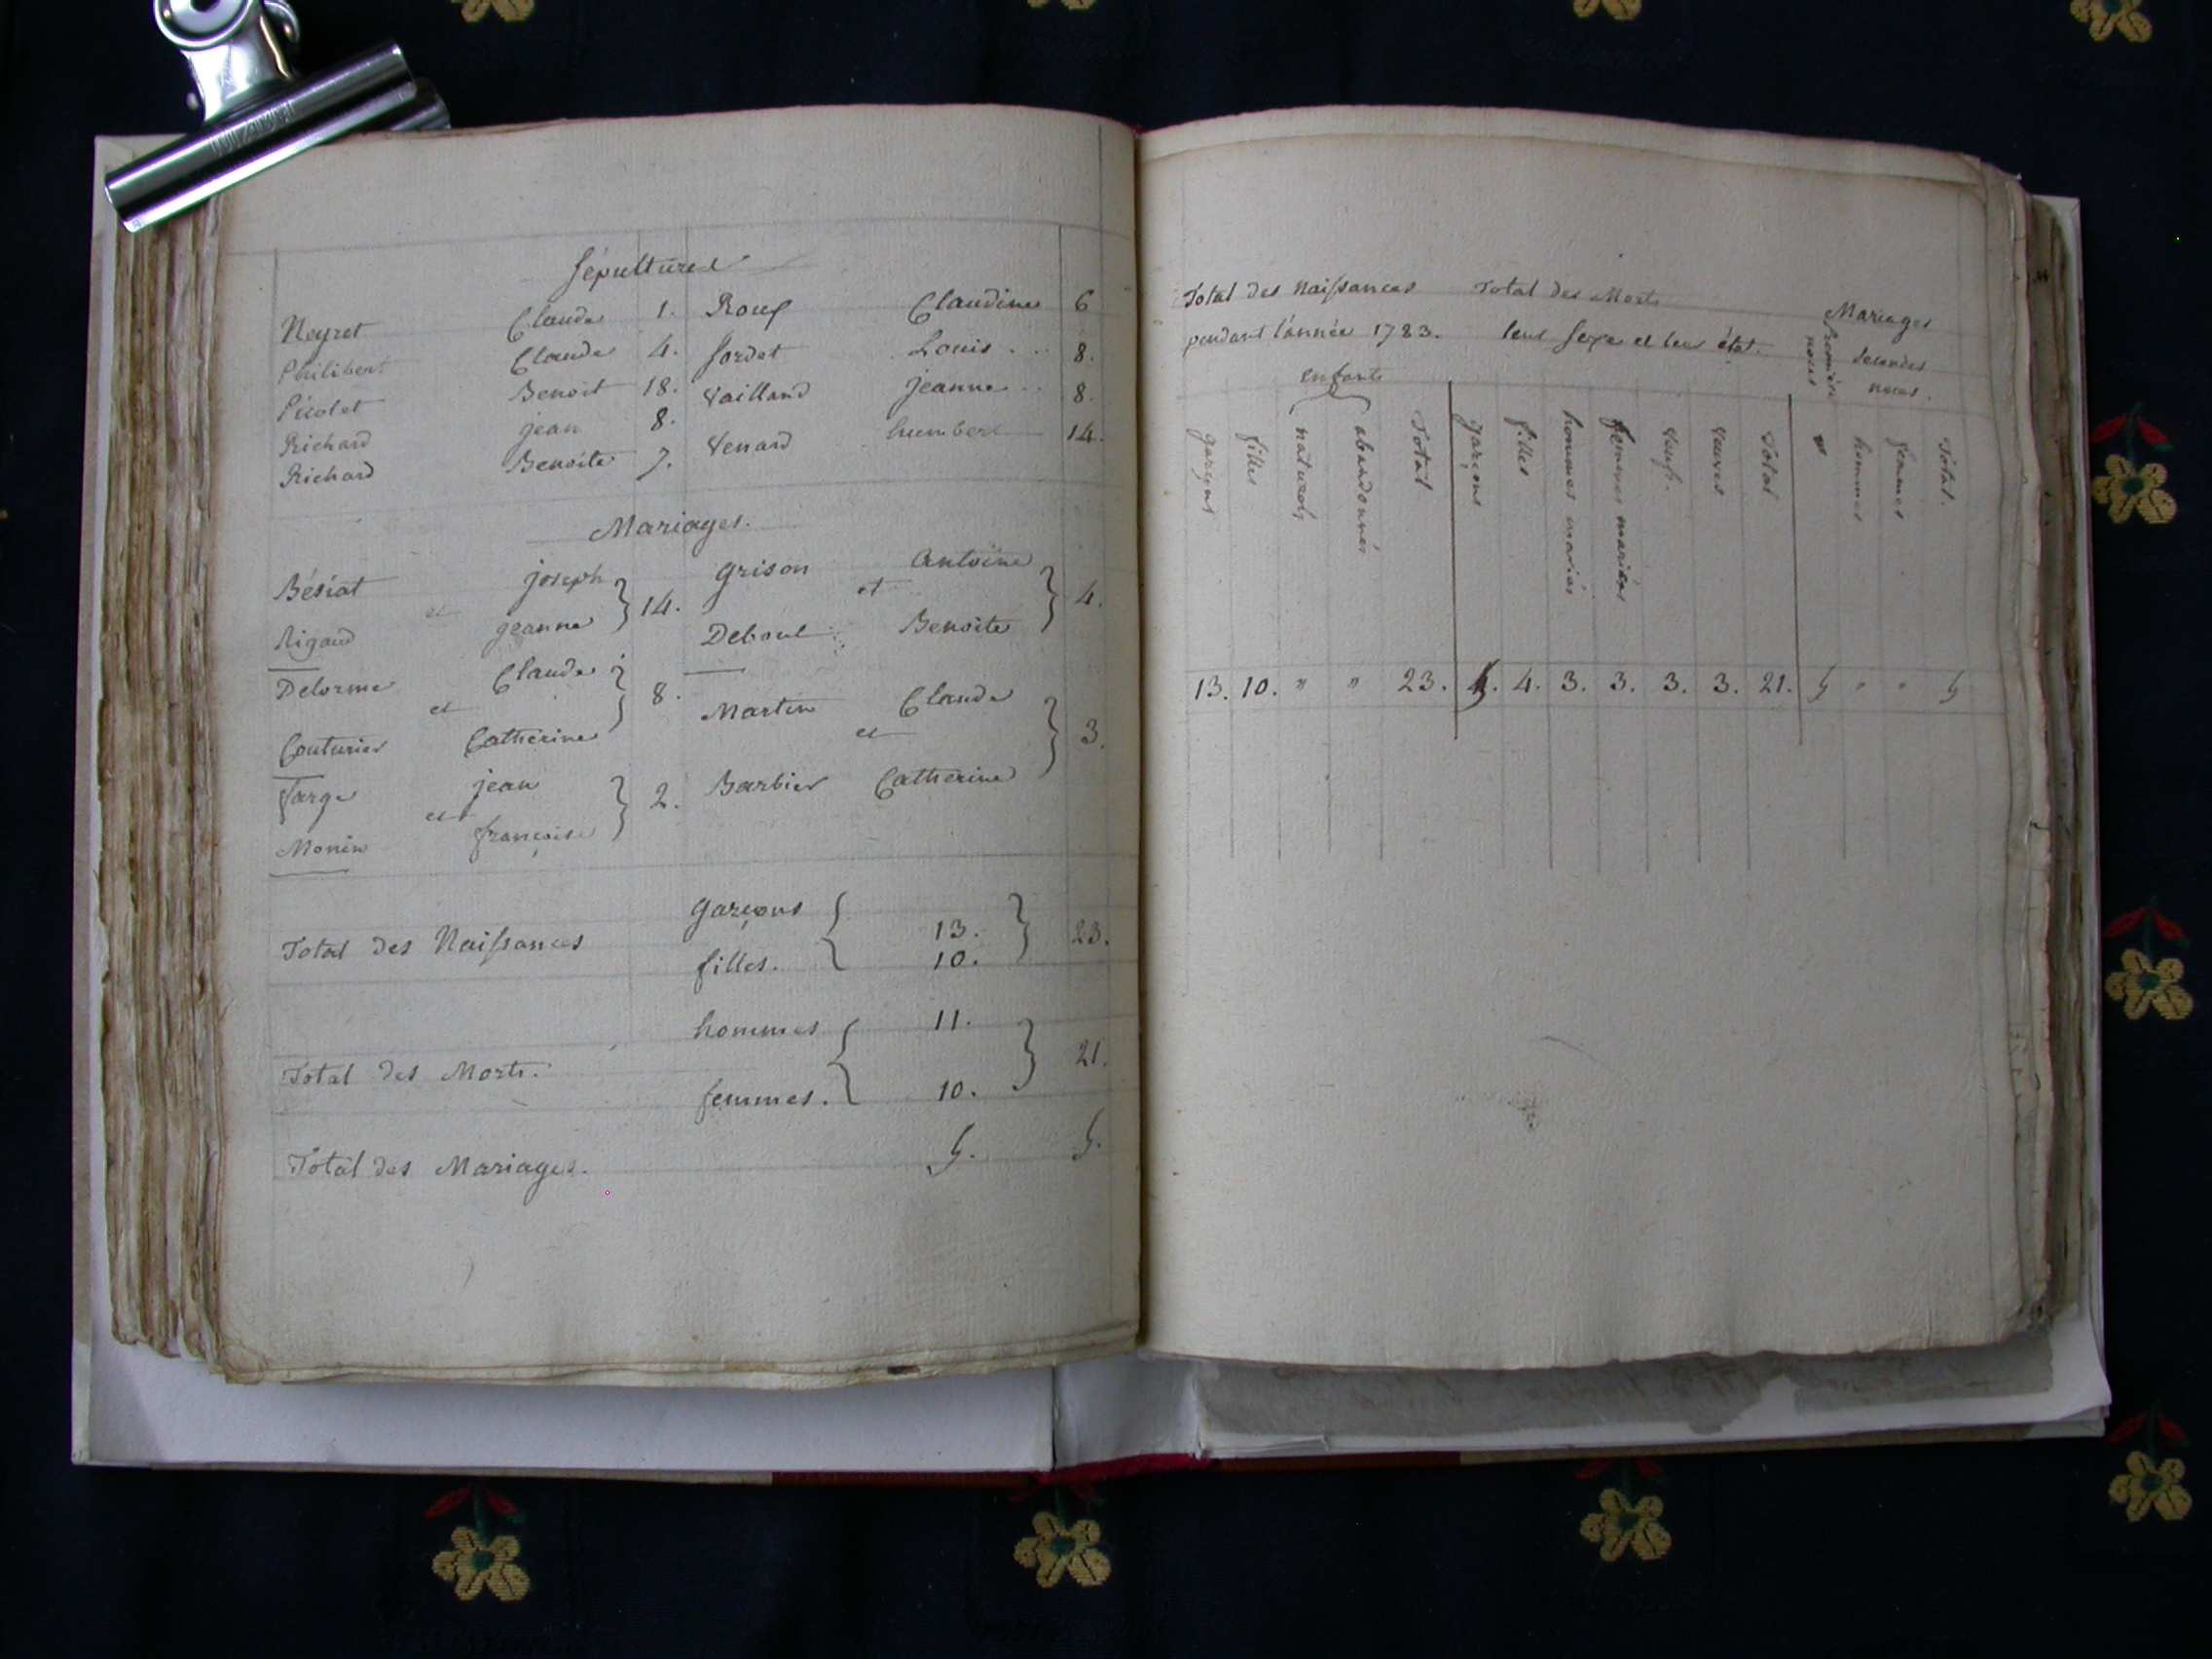 Sépultures
Neyret Claude 1. Roux Claudine 6
Philibert Claude 4. Sordet Louis . . . 8.
Picolet Benoit 18. Vailland jeanne . . 8.
Richard jean 8. Venard humbert 14.
Richard Benoite 7.
Mariages.
Bésiat joseph
et 14.
Rigaud jeanne
Grison Antoine
et 4.
Deboul Benoite
Delorme Claude
et 8.
Couturier Catherine
Martin Claude
et 3.
Barbier Catherine
Farge jean
et 2.
Monin françoise
garçons 13.
Total des Naissances 23.
filles. 10.
hommes 11.
Total des Morts. 21.
femmes. 10.
Total des Mariages. 5. 5.
Total des Naissances
pendant l'année 1783.
Total des Morts
leur sexe et leur état.
Mariages
premières noces
secondes
noces.
enfants
garçons filles naturels abandonnés Total garçons filles hommes mariés femmes mariées veufs. veuves Total hommes femmes Total.
13. 10. " " 23. 5. 4. 3. 3. 3. 3. 21. 5 " " 5